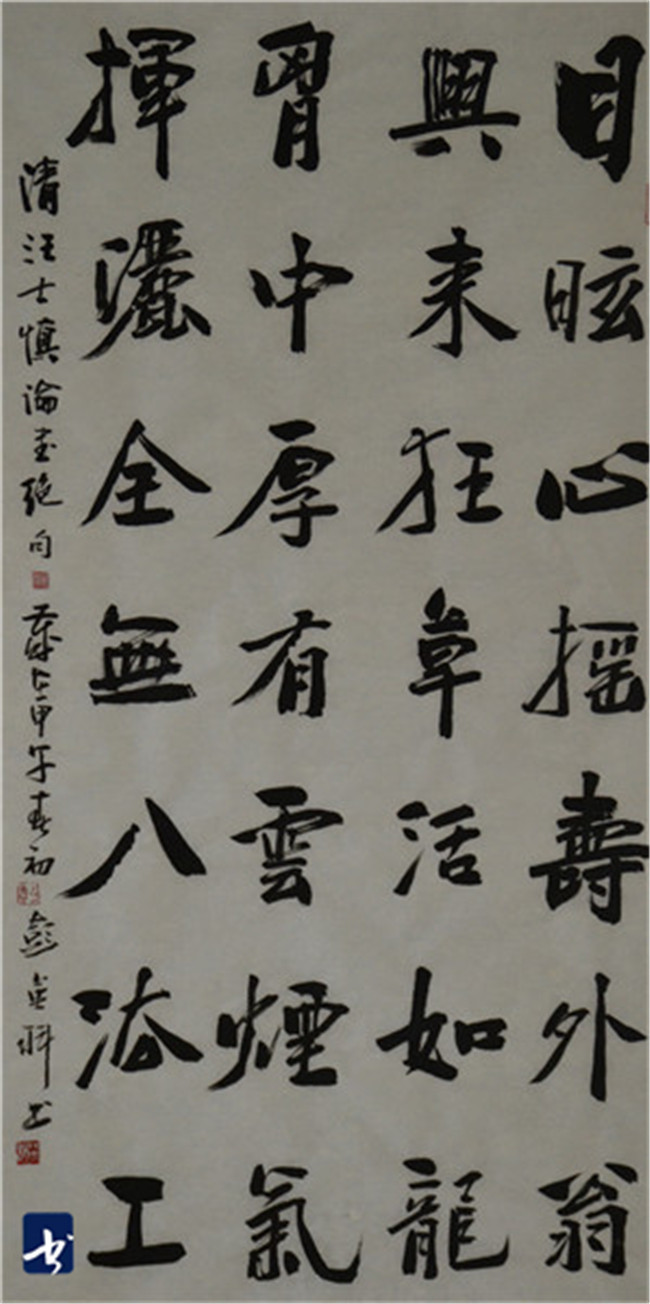 目眩心摇壽外翁
興来狂草活如龍
胷中厚有雲煙氣
揮灑全無八法工
清汪士慎論书絶句
歲次甲午春初
彭金书
书